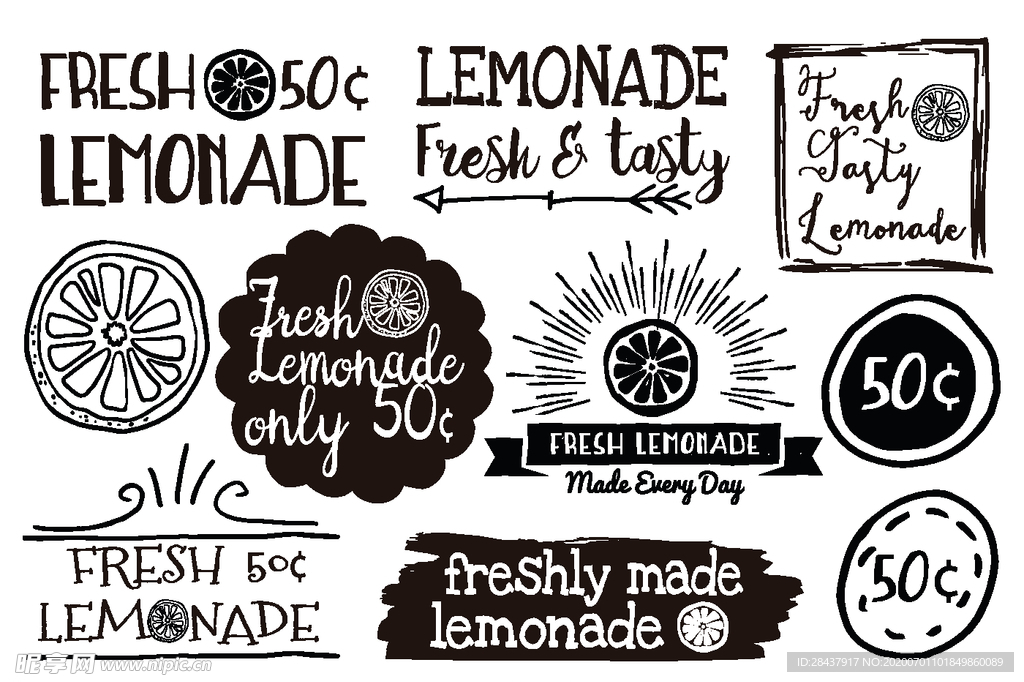 FRESH 50¢
LEMONADE
LEMONADE
Fresh & tasty
Fresh
Tasty
Lemonade
Fresh
Lemonade
only 50¢
FRESH LEMONADE
Made Every Day
50¢
FRESH 50¢
LEMONADE
freshly made
lemonade
50¢
昵享网 www.nipic.cn
ID:28437917 NO:20200701101849860089